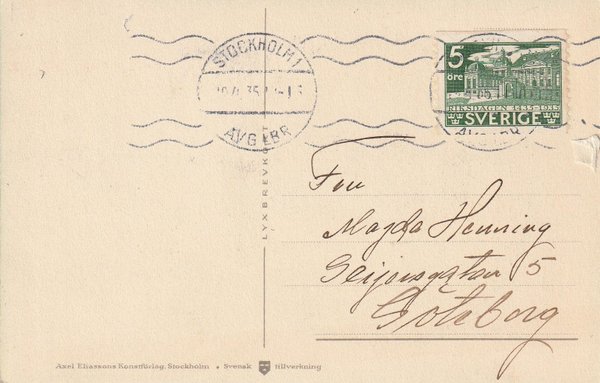 STOCKHOLM 1
35
AVG LBR
5
öre
RIKSDAGEN 1435-1935
SVERIGE
LYXBREVKORT
Fru
Magda Henning
Geijersgatan 5
Göteborg
Axel Eliassons Konstförlag, Stockholm • Svensk tillverkning